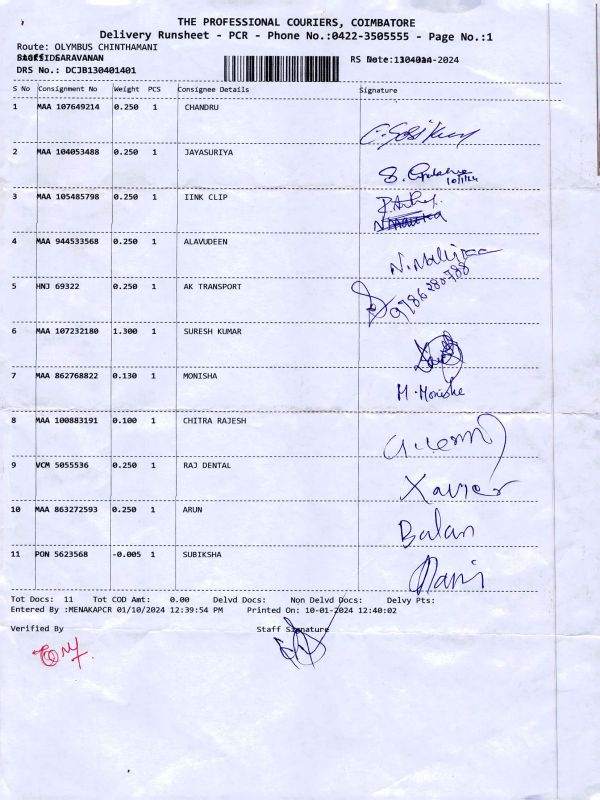 THE PROFESSIONAL COURIERS, COIMBATORE
Delivery Runsheet - PCR - Phone No.:0422-3505555 - Page No.:1
Route: OLYMBUS CHINTHAMANI
SARAVANAN
DRS No.: DCJB130401401
S No Consignment No Weight PCS Consignee Details Signature
1 MAA 107649214 0.250 1 CHANDRU
2 MAA 104053488 0.250 1 JAYASURIYA
10/1/24
3 MAA 105485798 0.250 1 IINK CLIP
4 MAA 944533568 0.250 1 ALAVUDEEN
5 HNJ 69322 0.250 1 AK TRANSPORT
9786280788
6 MAA 107232180 1.300 1 SURESH KUMAR
7 MAA 862768822 0.130 1 MONISHA
M. Monisha
8 MAA 100883191 0.100 1 CHITRA RAJESH
9 VCM 5055536 0.250 1 RAJ DENTAL
Xavier
10 MAA 863272593 0.250 1 ARUN
Balan
11 PON 5623568 -0.005 1 SUBIKSHA
Mani
Tot Docs: 11 Tot COD Amt: 0.00 Delvd Docs: Non Delvd Docs: Delvy Pts:
Entered By :MENAKAPCR 01/10/2024 12:39:54 PM Printed On: 10-01-2024 12:40:02
Verified By Staff Signature